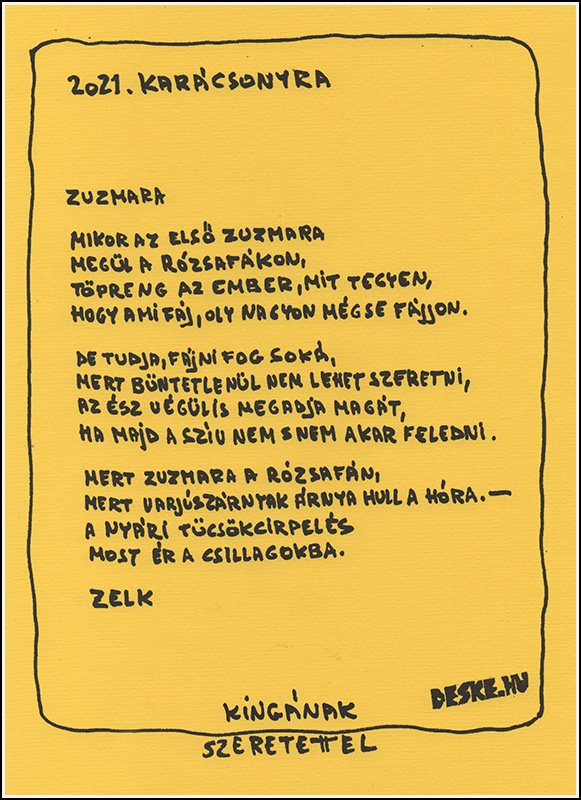 2021. KARÁCSONYRA
ZUZMARA
MIKOR AZ ELSŐ ZUZMARA
MEGÜL A RÓZSAFÁKON,
TÖPRENG AZ EMBER, MIT TEGYEN,
HOGY AMI FÁJ, OLY NAGYON MÉGSE FÁJJON.
DE TUDJA, FÁJNI FOG SOKÁ,
MERT BÜNTETLENÜL NEM LEHET SZERETNI,
AZ ÉSZ VÉGÜLIS MEGADJA MAGÁT,
HA MAJD A SZÍV NEM S NEM AKAR FELEDNI.
MERT ZUZMARA A RÓZSAFÁN,
MERT VARJÚSZÁRNYAK ÁRNYA HULL A HÓRA. —
A NYÁRI TÜCSÖKCIRPELÉS
MOST ÉR A CSILLAGOKBA.
ZELK
DESKE.HU
KINGÁNAK
SZERETETTEL